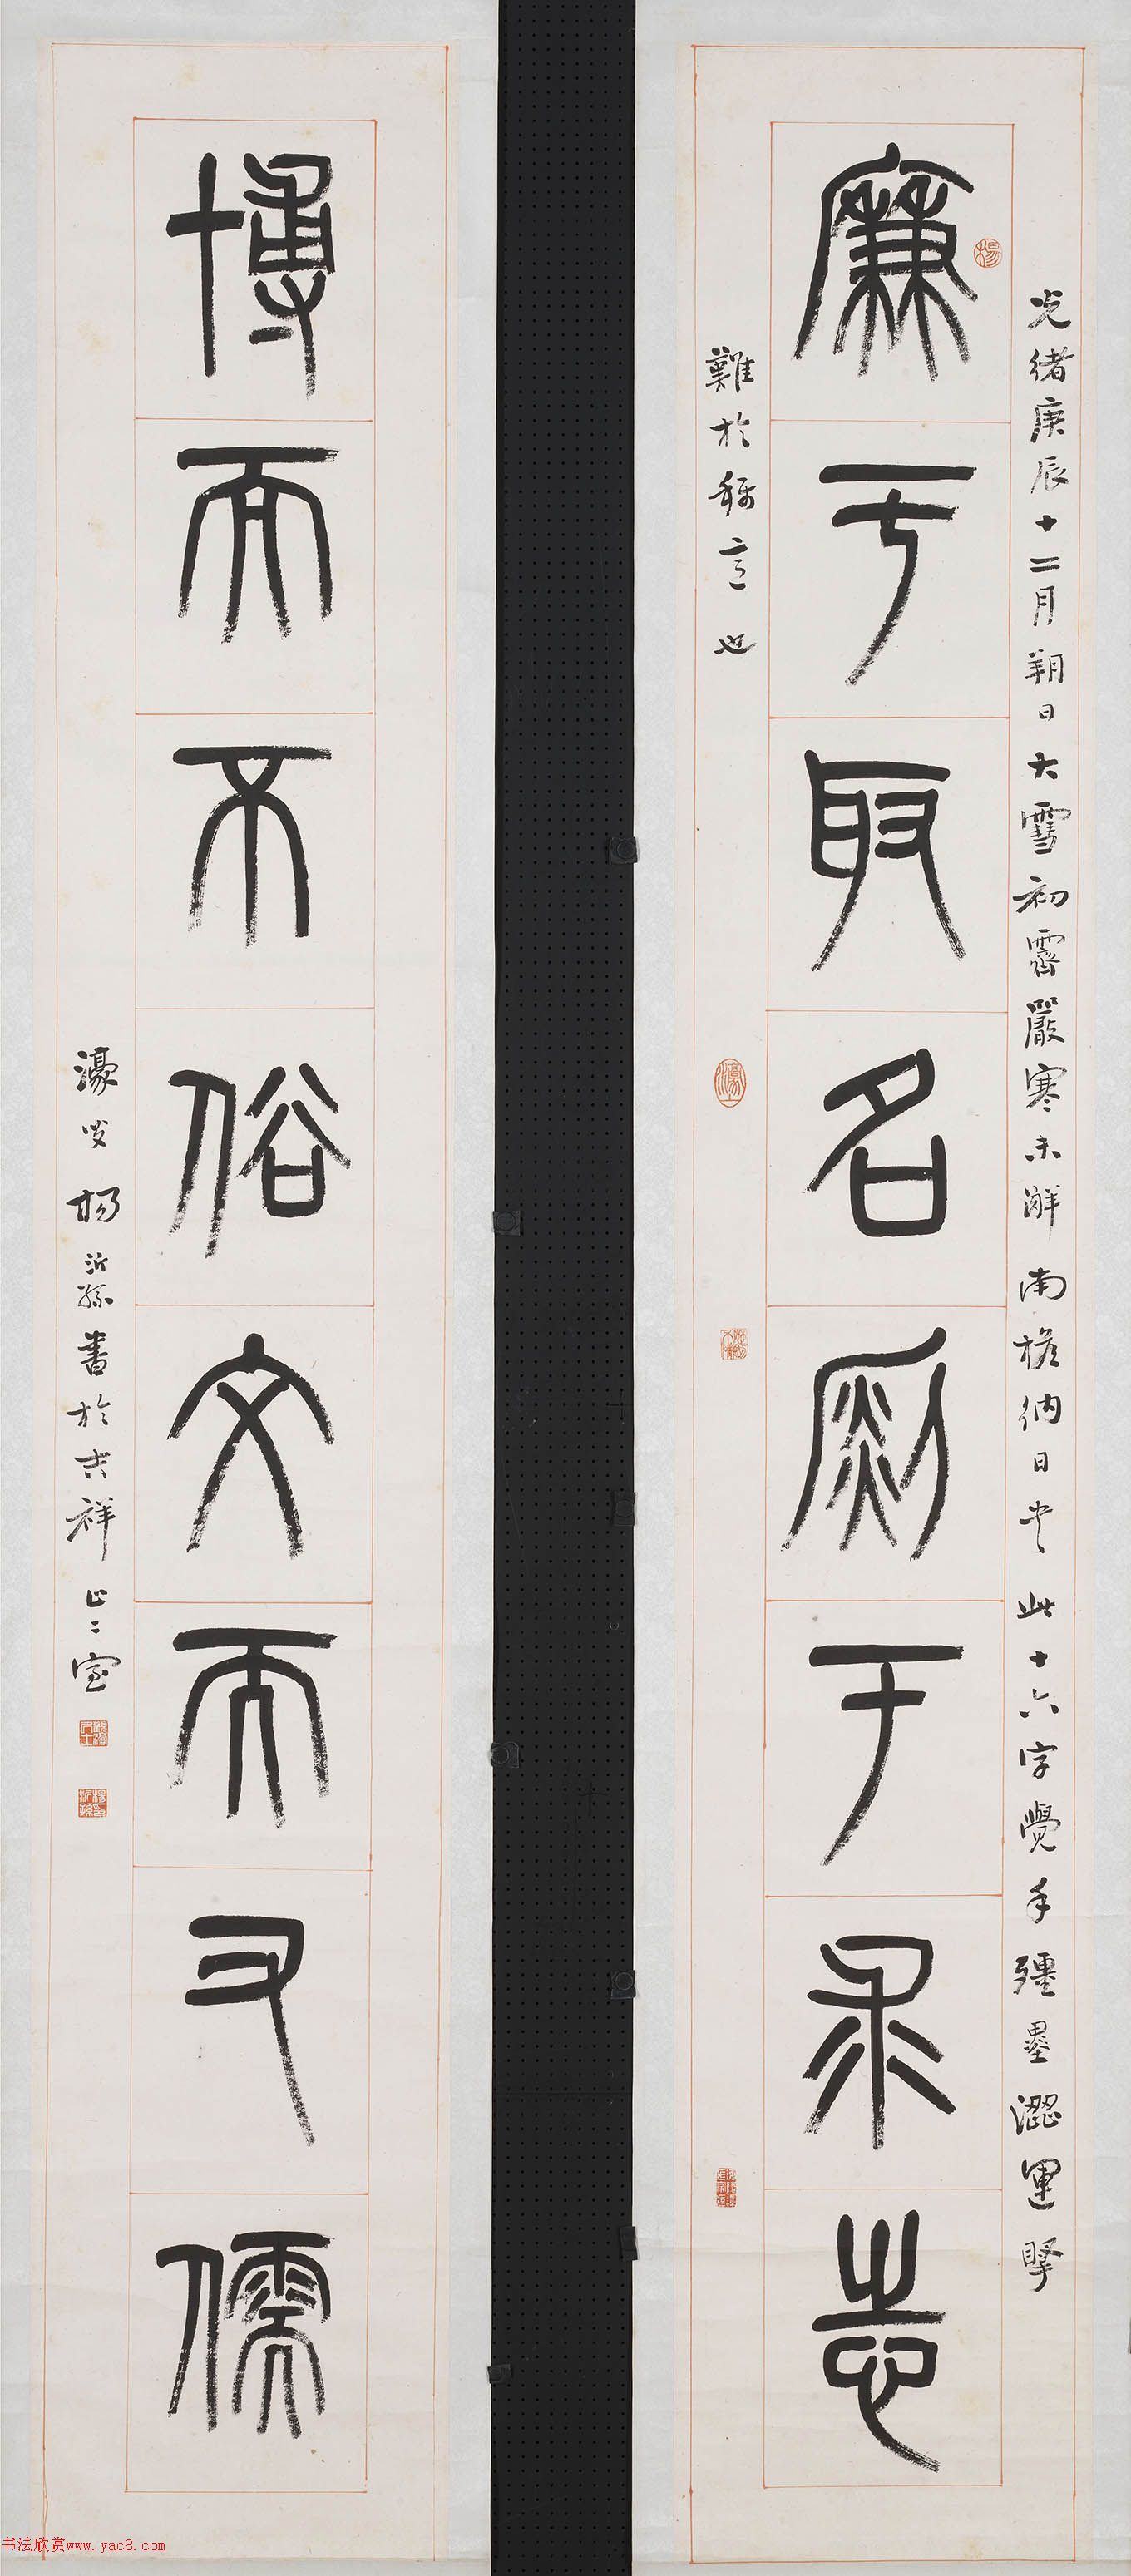 光緒庚辰十二月朔日大雪初霽嚴寒未澥南檐納日書此十六字覺手殭墨澀運掔
廉于取名銳于求志
難於稱意也
博而不俗文而又儒
濠叟楊沂孫書於吉祥止止室
楊
濠上
书法欣赏www.yac8.com